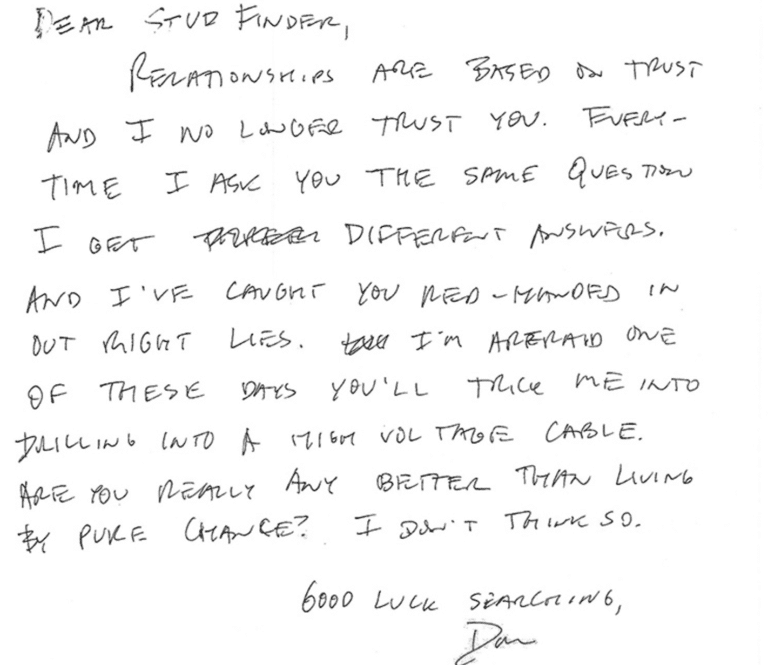 DEAR STUD FINDER,
RELATIONSHIPS ARE BASED ON TRUST
AND I NO LONGER TRUST YOU. EVERY-
TIME I ASK YOU THE SAME QUESTION
I GET DIFFERENT ANSWERS.
AND I'VE CAUGHT YOU RED-HANDED IN
OUT RIGHT LIES. I'M AFRAID ONE
OF THESE DAYS YOU'LL TRICK ME INTO
DRILLING INTO A HIGH VOLTAGE CABLE.
ARE YOU REALLY ANY BETTER THAN LIVING
BY PURE CHANCE? I DON'T THINK SO.
GOOD LUCK SEARCHING,
Dan